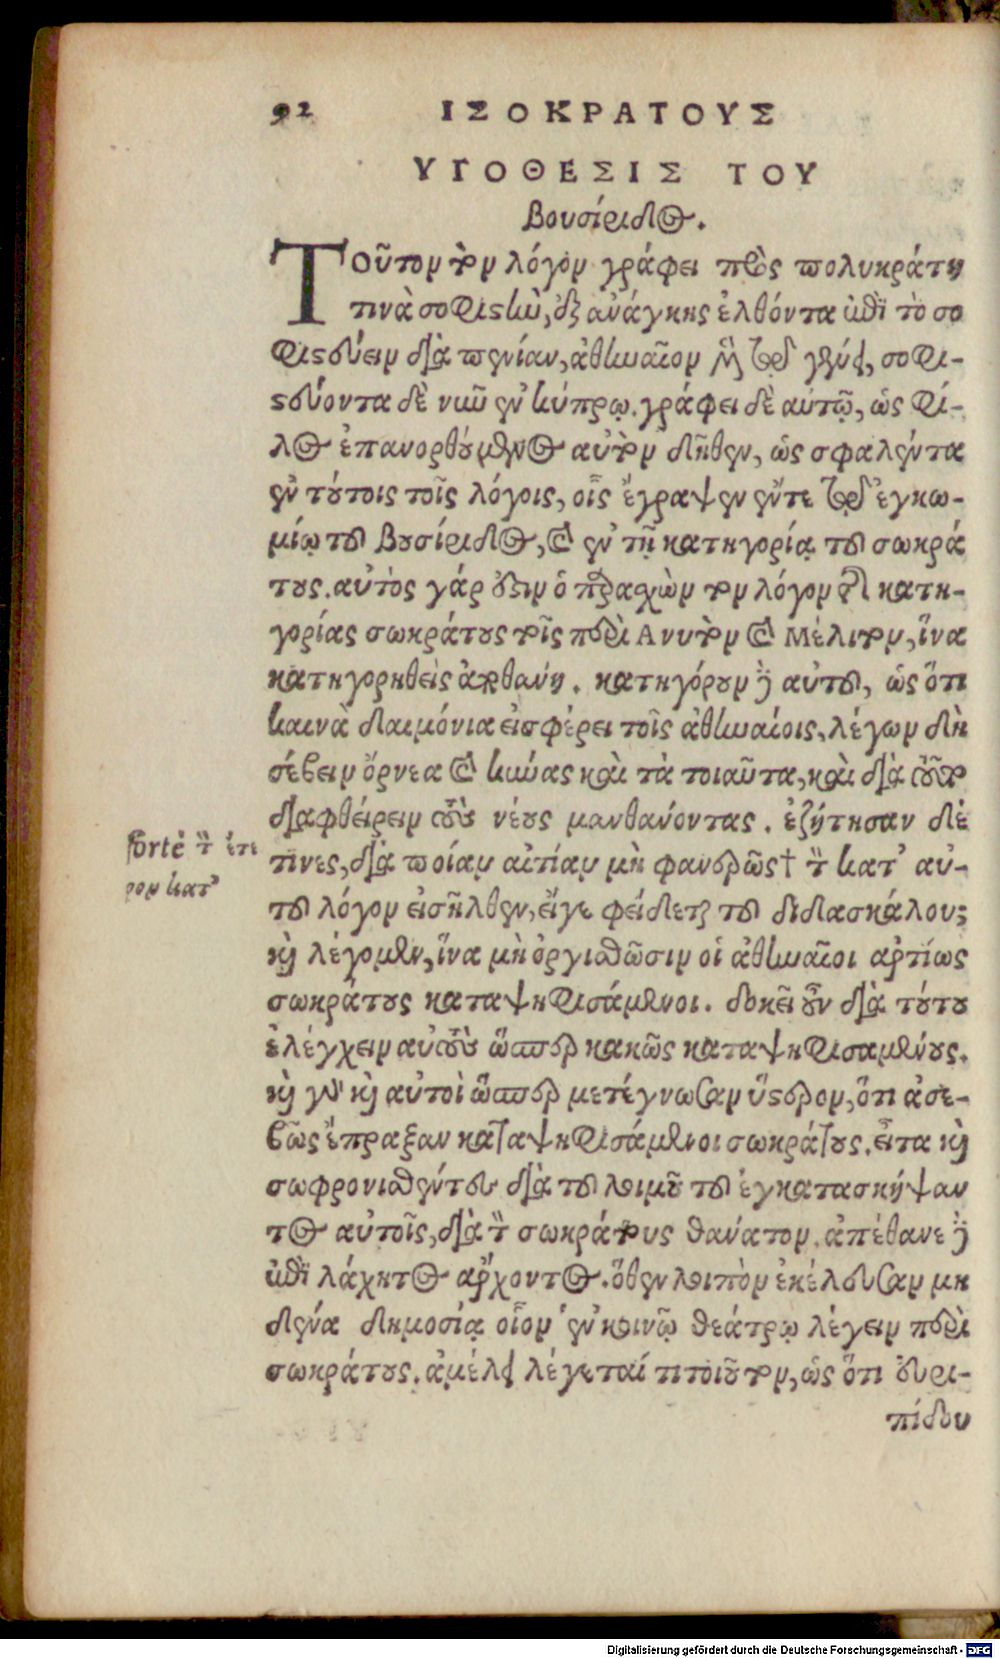 92 ΙΣΟΚΡΑΤΟΥΣ
ΥΠΟΘΕΣΙΣ ΤΟΥ
Βουσίριδος.
Τοῦτον τὸν λόγον γράφει πρὸς πολυκράτη
τινὰ σοφιστὴν, ἐξ ἀνάγκης ἐλθόντα ἐπὶ τὸ σο
φιστεύειν διὰ πενίαν, ἀθηναῖον μὲν τῷ γένει, σοφι-
στεύοντα δὲ νῦν ἐν κύπρῳ. γράφει δὲ αὐτῷ, ὡς φί-
λος ἐπανορθούμενος αὐτὸν δῆθεν, ὡς σφαλέντα
ἐν τούτοις τοῖς λόγοις, οἷς ἔγραψεν ἔν τε τῷ ἐγκω-
μίῳ τοῦ βουσίριδος, καὶ ἐν τῇ κατηγορίᾳ τοῦ σωκρά
τους. αὐτὸς γάρ ἐστιν ὁ παρασχὼν τὸν λόγον τῆς κατη-
γορίας σωκράτους τοῖς περὶ Ανυτον καὶ Μέλιτον, ἵνα
κατηγορηθεὶς ἀποθάνῃ. κατηγόρουν δὲ αὐτοῦ, ὡς ὅτι
καινὰ δαιμόνια εἰσφέρει τοῖς ἀθηναίοις, λέγων δὴ
σέβειν ὄρνεα καὶ κύνας καὶ τὰ τοιαῦτα, καὶ διὰ τοῦτο
διαφθείρειν τοὺς νέους μανθάνοντας. ἐζήτησαν δέ
τινες, διὰ ποίαν αἰτίαν μὴ φανερῶς† τὸν κατ' αὐ-
τοῦ λόγον εἰσῆλθεν, εἴγε φείδεται τοῦ διδασκάλου;
καὶ λέγομεν, ἵνα μὴ ὀργισθῶσιν οἱ ἀθηναῖοι ἀρτίως
σωκράτους καταψηφισάμενοι. δοκεῖ οὖν διὰ τούτου
ἐλέγχειν αὐτοὺς ὥσπερ κακῶς καταψηφισαμένους.
καὶ γὰρ καὶ αὐτοὶ ὥσπερ μετέγνωσαν ὕστερον, ὅτι ἀσε-
βῶς ἔπραξαν καταψηφισάμενοι σωκράτους. εἶτα καὶ
σωφρονισθέντων διὰ τοῦ λοιμοῦ τοῦ ἐγκατασκήψαν
τος αὐτοῖς, διὰ τὸν σωκράτους θάνατον. ἀπέθανε δὲ
ἐπὶ λάχητος ἄρχοντος. ὅθεν λοιπὸν ἐκέλευσαν μη
δένα δημοσίᾳ οἷον ἐν κοινῷ θεάτρῳ λέγειν περὶ
σωκράτους. ἀμέλει λέγεταί τι τοιοῦτον, ὡς ὅτι εὐρι-
πίδου
forte τὸν ἕτε
ρον κατ'
Digitalisierung gefördert durch die Deutsche Forschungsgemeinschaft - DFG